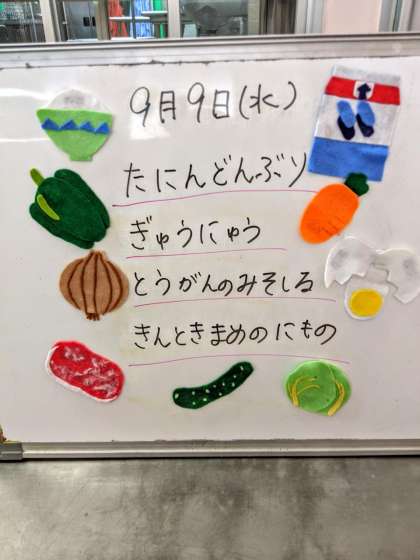 9月9日(水)
たにんどんぶり
ぎゅうにゅう
とうがんのみそしる
きんときまめのにもの